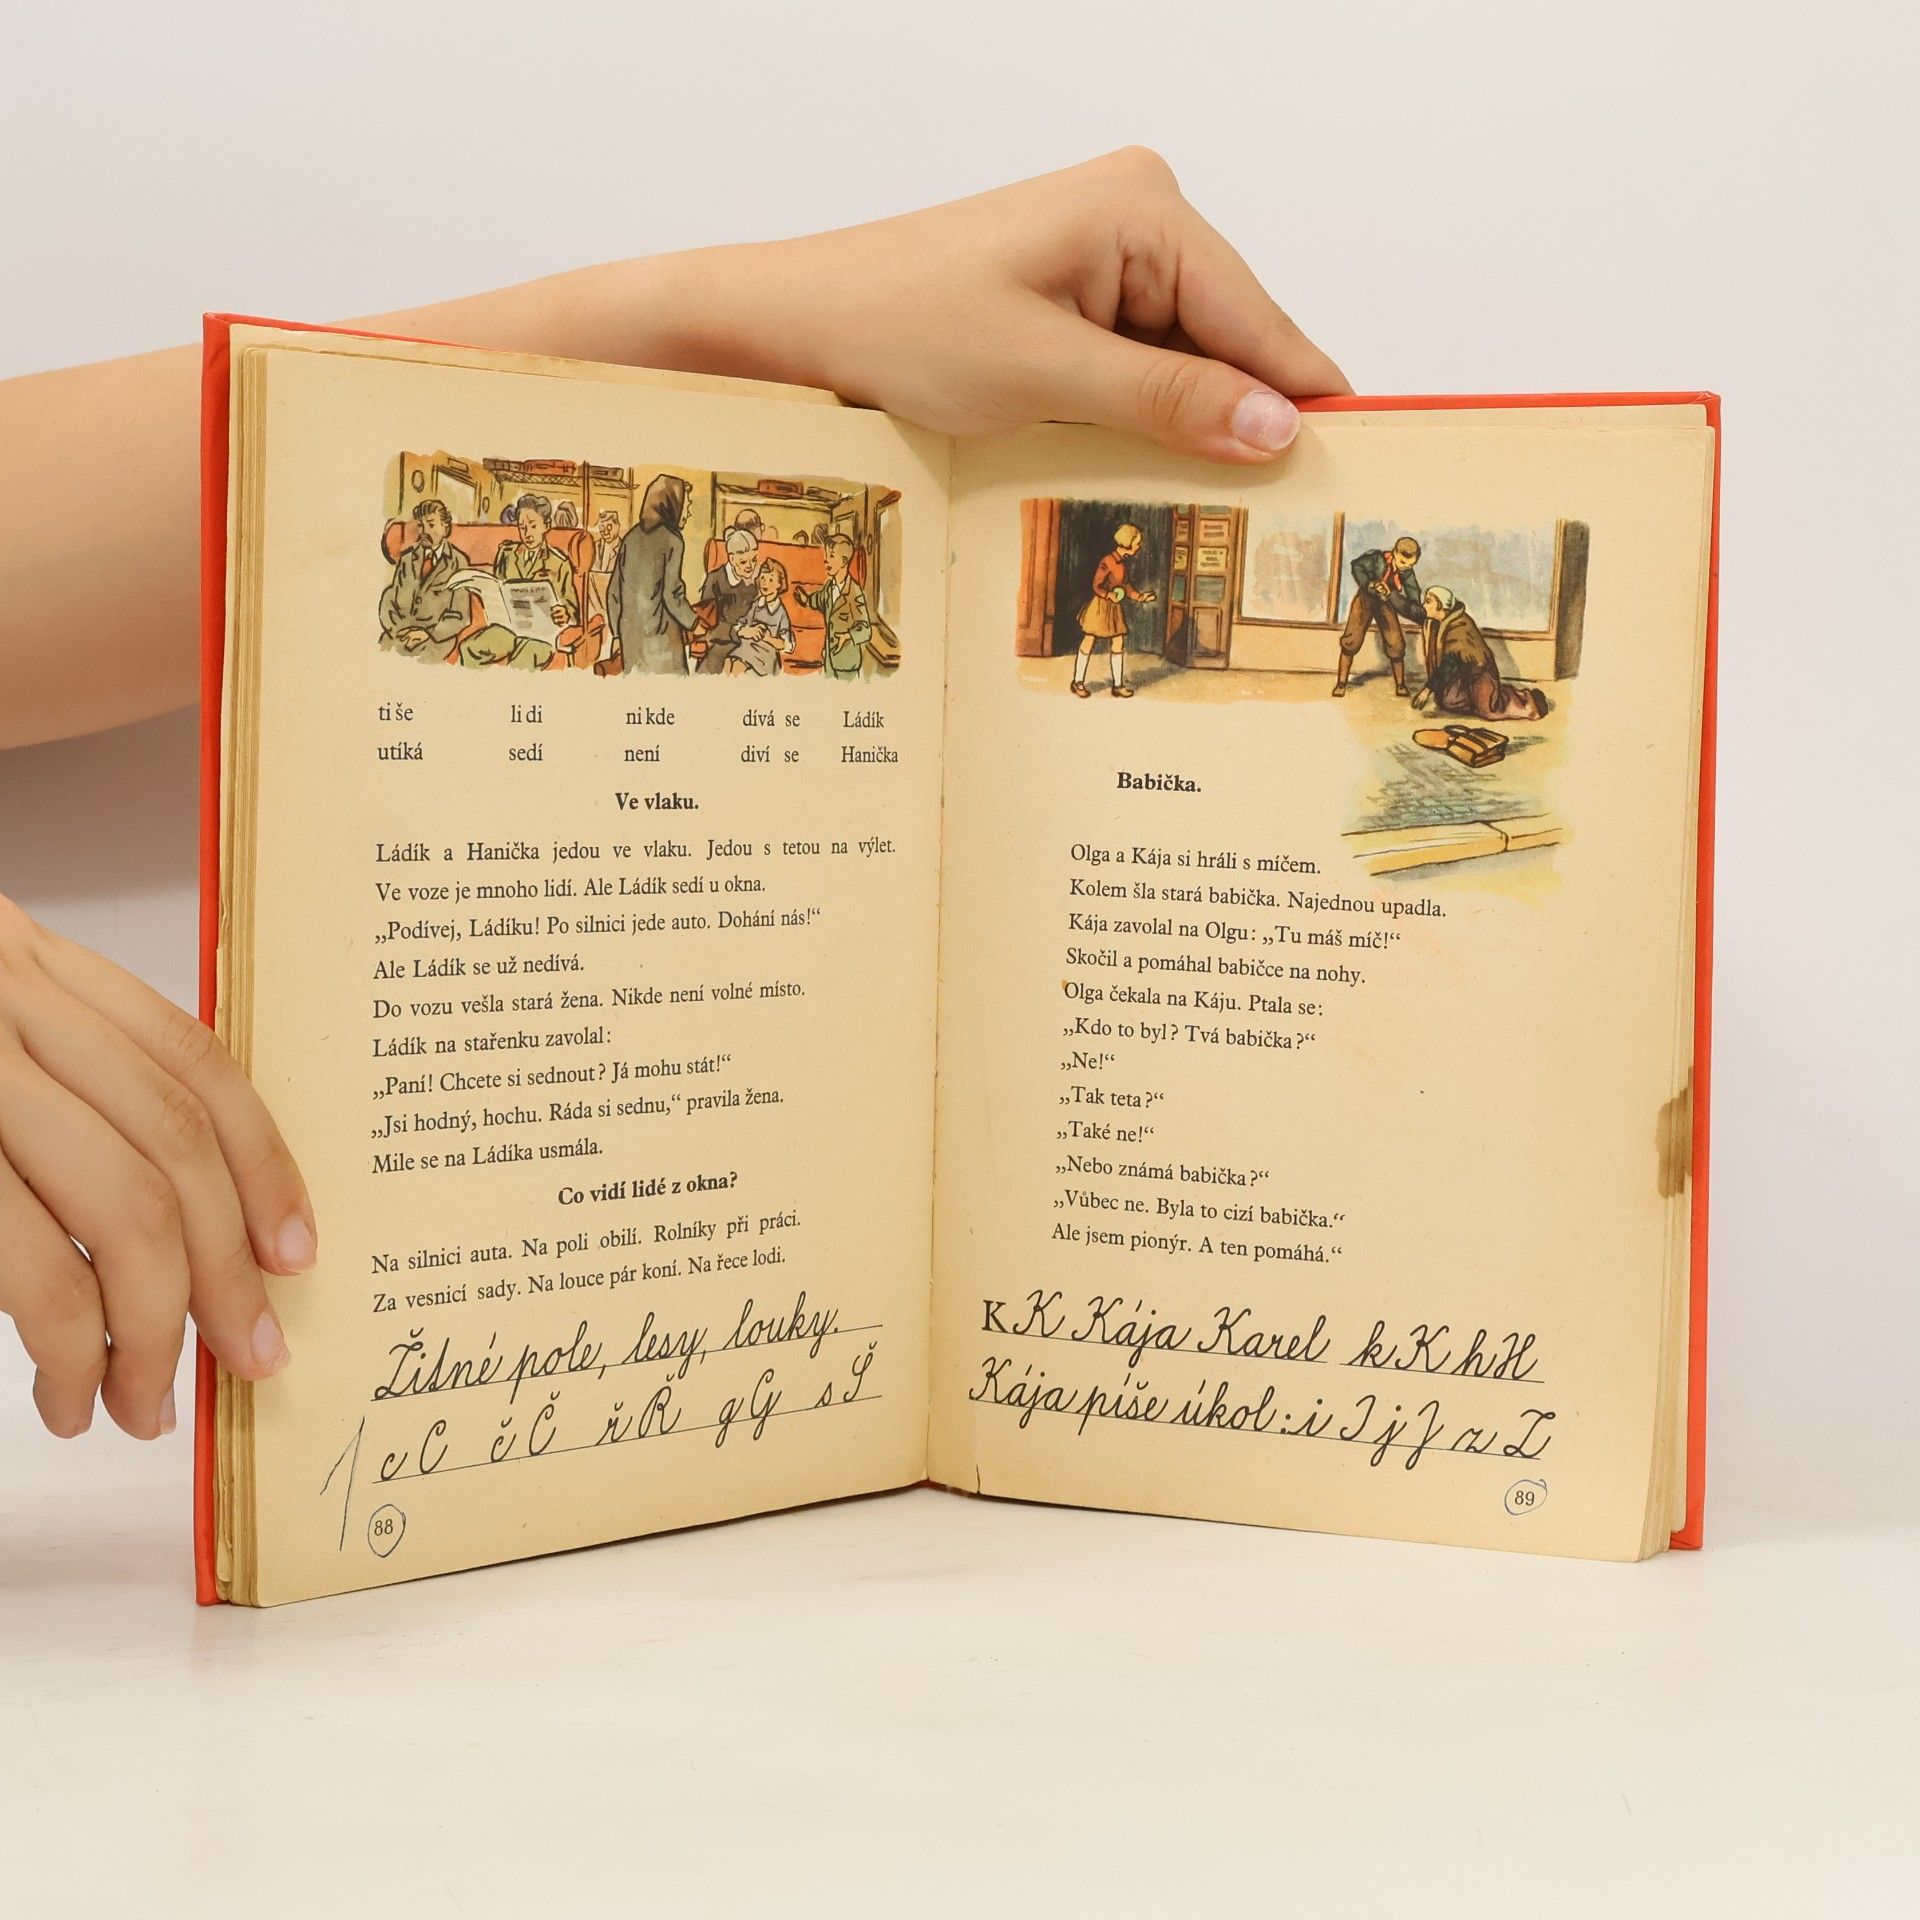 tiše lidi nikde dívá se Ládík
utíká sedí není diví se Hanička
Ve vlaku.
Ládík a Hanička jedou ve vlaku. Jedou s tetou na výlet.
Ve voze je mnoho lidí. Ale Ládík sedí u okna.
„Podívej, Ládíku! Po silnici jede auto. Dohání nás!“
Ale Ládík se už nedívá.
Do vozu vešla stará žena. Nikde není volné místo.
Ládík na stařenku zavolal:
„Paní! Chcete si sednout? Já mohu stát!“
„Jsi hodný, hochu. Ráda si sednu,“ pravila žena.
Mile se na Ládíka usmála.
Co vidí lidé z okna?
Na silnici auta. Na poli obilí. Rolníky při práci.
Za vesnicí sady. Na louce pár koní. Na řece lodi.
Žitné pole, lesy, louky.
c C č Č ř Ř g G s Š
1
88
Babička.
Olga a Kája si hráli s míčem.
Kolem šla stará babička. Najednou upadla.
Kája zavolal na Olgu: „Tu máš míč!“
Skočil a pomáhal babičce na nohy.
Olga čekala na Káju. Ptala se:
„Kdo to byl? Tvá babička?“
„Ne!“
„Tak teta?“
„Také ne!“
„Nebo známá babička?“
„Vůbec ne. Byla to cizí babička.“
Ale jsem pionýr. A ten pomáhá.“
K K Kája Karel k K h H
Kája píše úkol: i I j J z Z
89